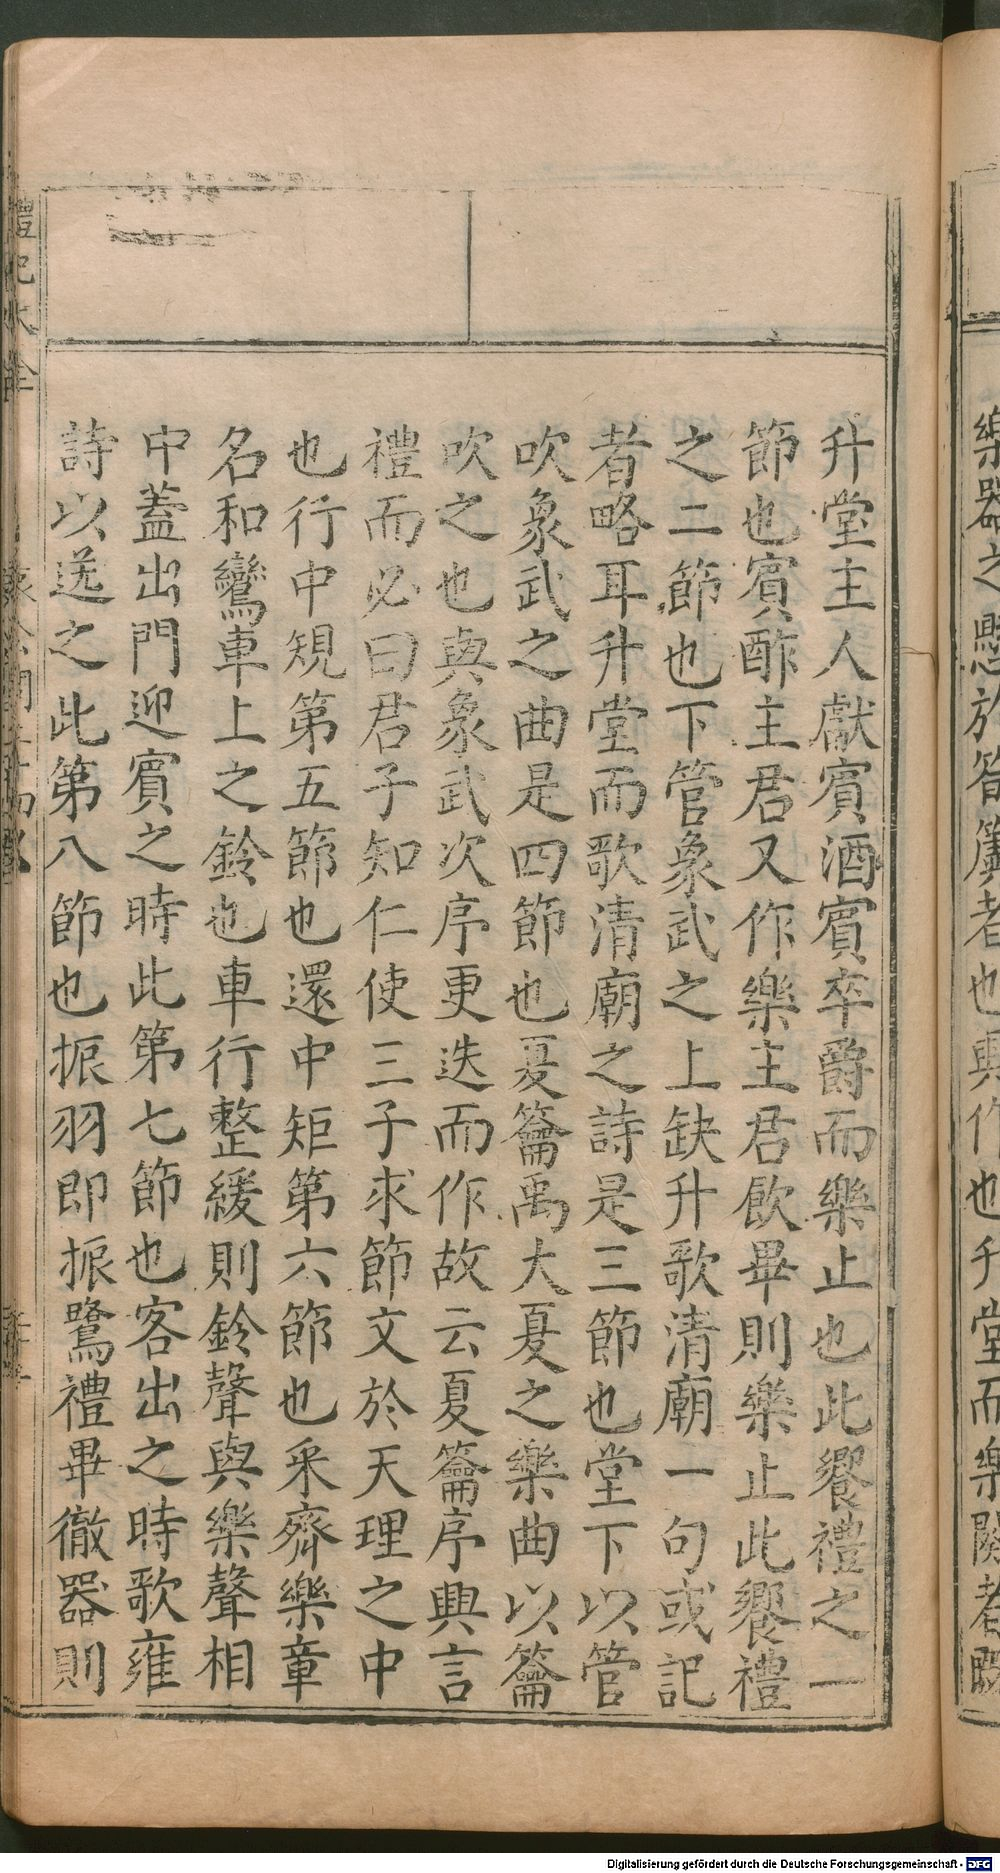 樂器之懸於簨簴者也興作也升堂而樂闋者
升堂主人獻賓酒賓卒爵而樂止也此饗禮之一
節也賓酢主君又作樂主君飲畢則樂止此饗禮
之二節也下管象武之上缺升歌清廟一句或記
者略耳升堂而歌清廟之詩是三節也堂下以管
吹象武之曲是四節也夏籥禹大夏之樂曲以籥
吹之也與象武次序更迭而作故云夏籥序興言
禮而必曰君子知仁使三子求節文於天理之中
也行中規第五節也還中矩第六節也采齊樂章
名和鸞車上之鈴也車行整緩則鈴聲與樂聲相
中蓋出門迎賓之時此第七節也客出之時歌雍
詩以送之此第八節也振羽即振鷺禮畢徹器則
禮記大全
Digitalisierung gefördert durch die Deutsche Forschungsgemeinschaft - DFG